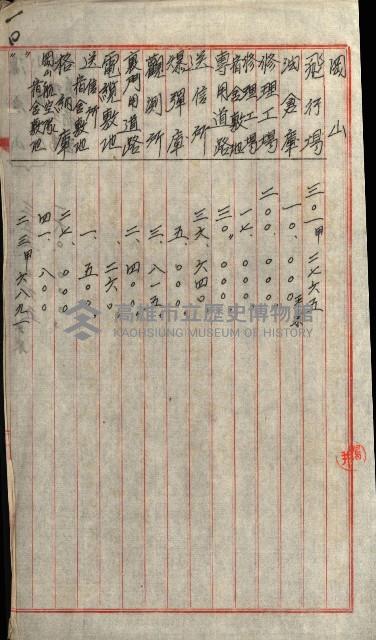 岡山
飛行場 三〇一甲二七六五
油倉庫 一、〇〇〇〇
修理工場 二〇、〇〇〇〇
修理工場宿舍敷地 一七、〇〇〇〇
專用道路 三、〇〇〇〇
送信所 三六、六四〇〇
爆彈庫 五、〇〇〇〇
觀測所 三、八一五
專用道路 二、四〇〇〇
電纜敷地 二六〇
送信所宿舍敷地 一、五〇〇〇
格納庫 二七、〇〇〇〇
岡山航空隊宿舍敷地 四一、八〇〇
〃 二三甲六八九一
一四
高雄市立歷史博物館
KAOHSIUNG MUSEUM OF HISTORY